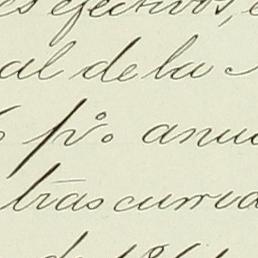 es efectivos,
al de la
6 p% anua
trascurrid
de 186